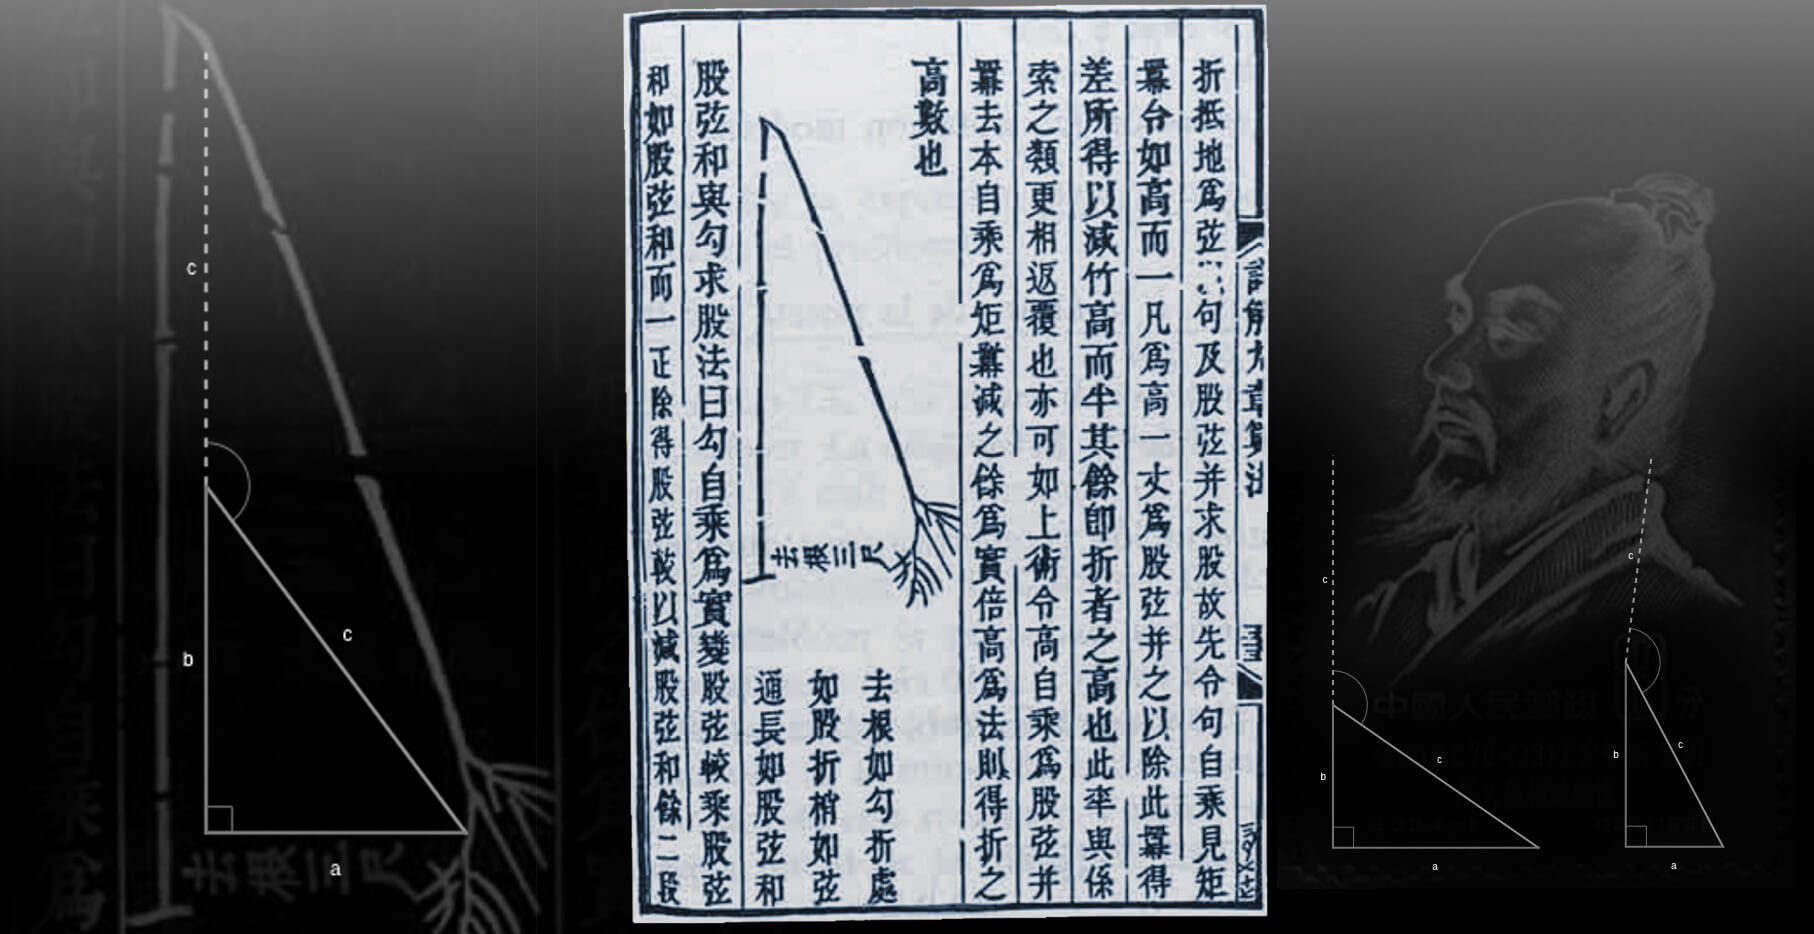 c
b
c
a
去根三尺
詳解九章算法
折抵地爲弦句及股弦并求股故先令句自乘見矩
冪台如高而一凡爲高一丈爲股弦并之以除此冪得
差所得以減竹高而半其餘卽折者之高也此率與係
索之類更相返覆也亦可如上術令高自乘爲股弦并
冪去本自乘爲矩冪減之餘爲實倍高爲法則得折之
高數也
去根三尺
去根如勾折處
如股折梢如弦
通長如股弦和
股弦和與勾求股法曰勾自乘爲實變股弦較乘股弦
和如股弦和而一正除得股弦較以減股弦和餘二段
中國人民郵政
分
c
b
c
a
c
b
c
a